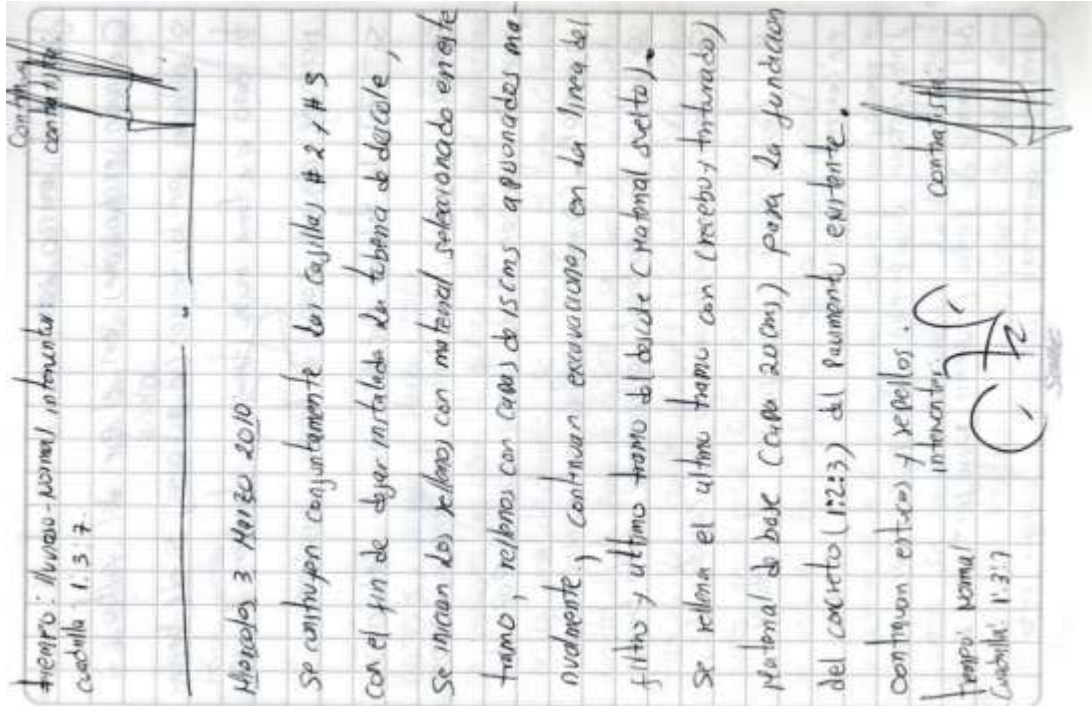 Continua
tiempo: lluvioso-normal, interventor: contratista:
cuadrilla 1:3:7.
Miercoles 3 Marzo 2010
Se construyen conjuntamente las casillas #2 y #3
con el fin de dejar instalada la tuberia de descole,
Se inician los rellenos con material seleccionado en este
tramo, rellenos con capas de 15 cms apuonados ma-
nualmente, continuan excavaciones en la linea del
filtro y ultimo tramo del descole (Material suelto).
Se rellena el ultimo tramo con (recebo y triturado)
Material de base (capa 20 cms) para la fundicion
del concreto (1:2:3) del pavimento existente.
Continuan estucos y repellos.
Tiempo: Normal interventor: contratista:
Cuadrilla: 1:3:7